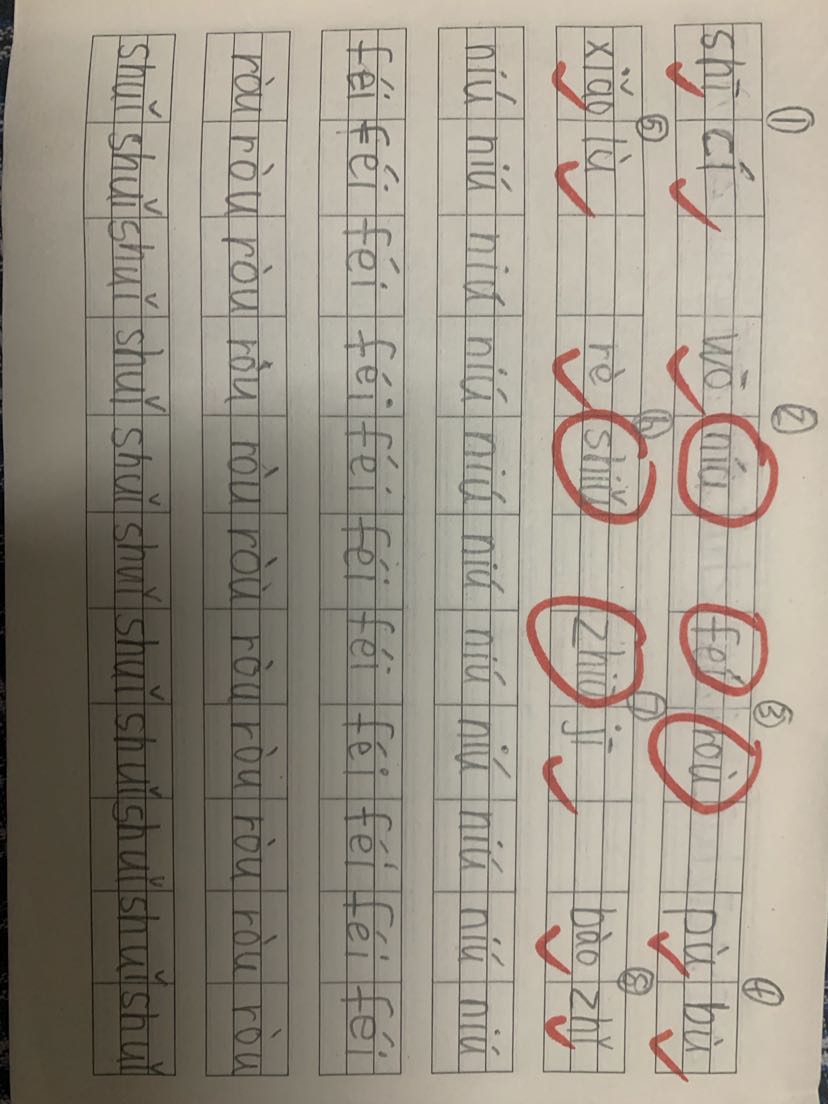 ① ② ③ ④
shī cí wō niú féi roù pù bù
⑤ ⑥ ⑦ ⑧
xiǎo lù rè shuǐ jī bào zhǐ
niú niú niú niú niú niú niú niú niú niú niú
féi féi féi féi féi féi féi féi féi féi féi
ròu ròu ròu ròu ròu ròu ròu ròu ròu ròu ròu
shuǐ shuǐ shuǐ shuǐ shuǐ shuǐ shuǐ shuǐ shuǐ shuǐ shuǐ